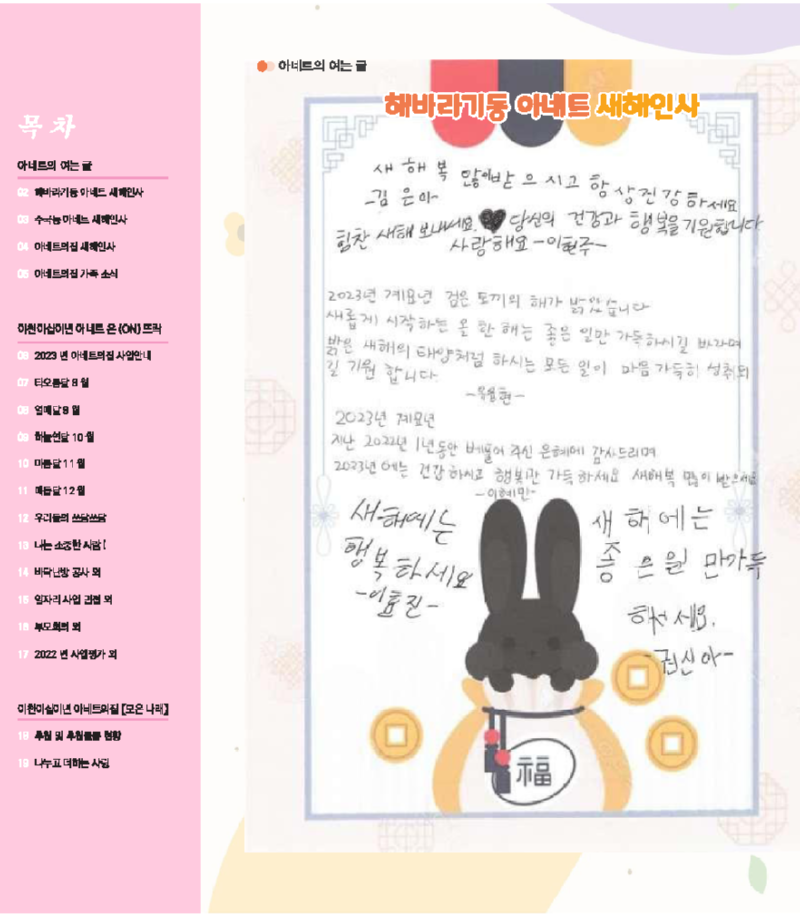 목차
아네트의 여는 글
02 해바라기동 아네트 새해인사
03 수국동 아네트 새해인사
04 아네트의집 새해인사
05 아네트의집 가족 소식
이천이십이년 아네트 온 (ON) 뜨락
06 2023 년 아네트의집 사업안내
07 타오름달 8 월
08 열매달 9 월
09 하늘연달 10 월
10 미틈달 11 월
11 매듭달 12 월
12 우리들의 쓰담쓰담
13 나는 소중한 사람 !
14 바닥난방 공사 외
15 일자리 사업 면접 외
16 부모회의 외
17 2022 년 사업평가 외
이천이십이년 아네트의집 [모은 나래]
18 후원 및 후원물품 현황
19 나누고 더하는 사랑
아네트의 여는 글
해바라기동 아네트 새해인사
새해 복 많이받으시고 항상건강하세요
-김은아-
힘찬 새해 보내세요. 당신의 건강과 행복을기원합니다
사랑해요 -이현주-
2023년 계묘년 검은 토끼의 해가 밝았습니다
새롭게 시작하는 올 한 해는 좋은 일만 가득하시길 바라며
밝은 새해의 태양처럼 하시는 모든 일이 마음 가득히 성취되
길 기원 합니다.
2023년 계묘년
지난 2022년 1년동안 베풀어 주신 은혜에 감사드리며
2023년에는 건강하시고 행복만 가득하세요 새해복 많이 받으세요
-이혜민-
새해에는
행복하세요
-이효진-
새해에는
좋은원 만가득
하세요.
-권신아-
福